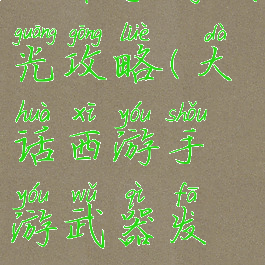 guāng gōng lüè dà
光攻略(大
huà xī yóu shǒu
话西游手
yóu wǔ qì fā
游武器发